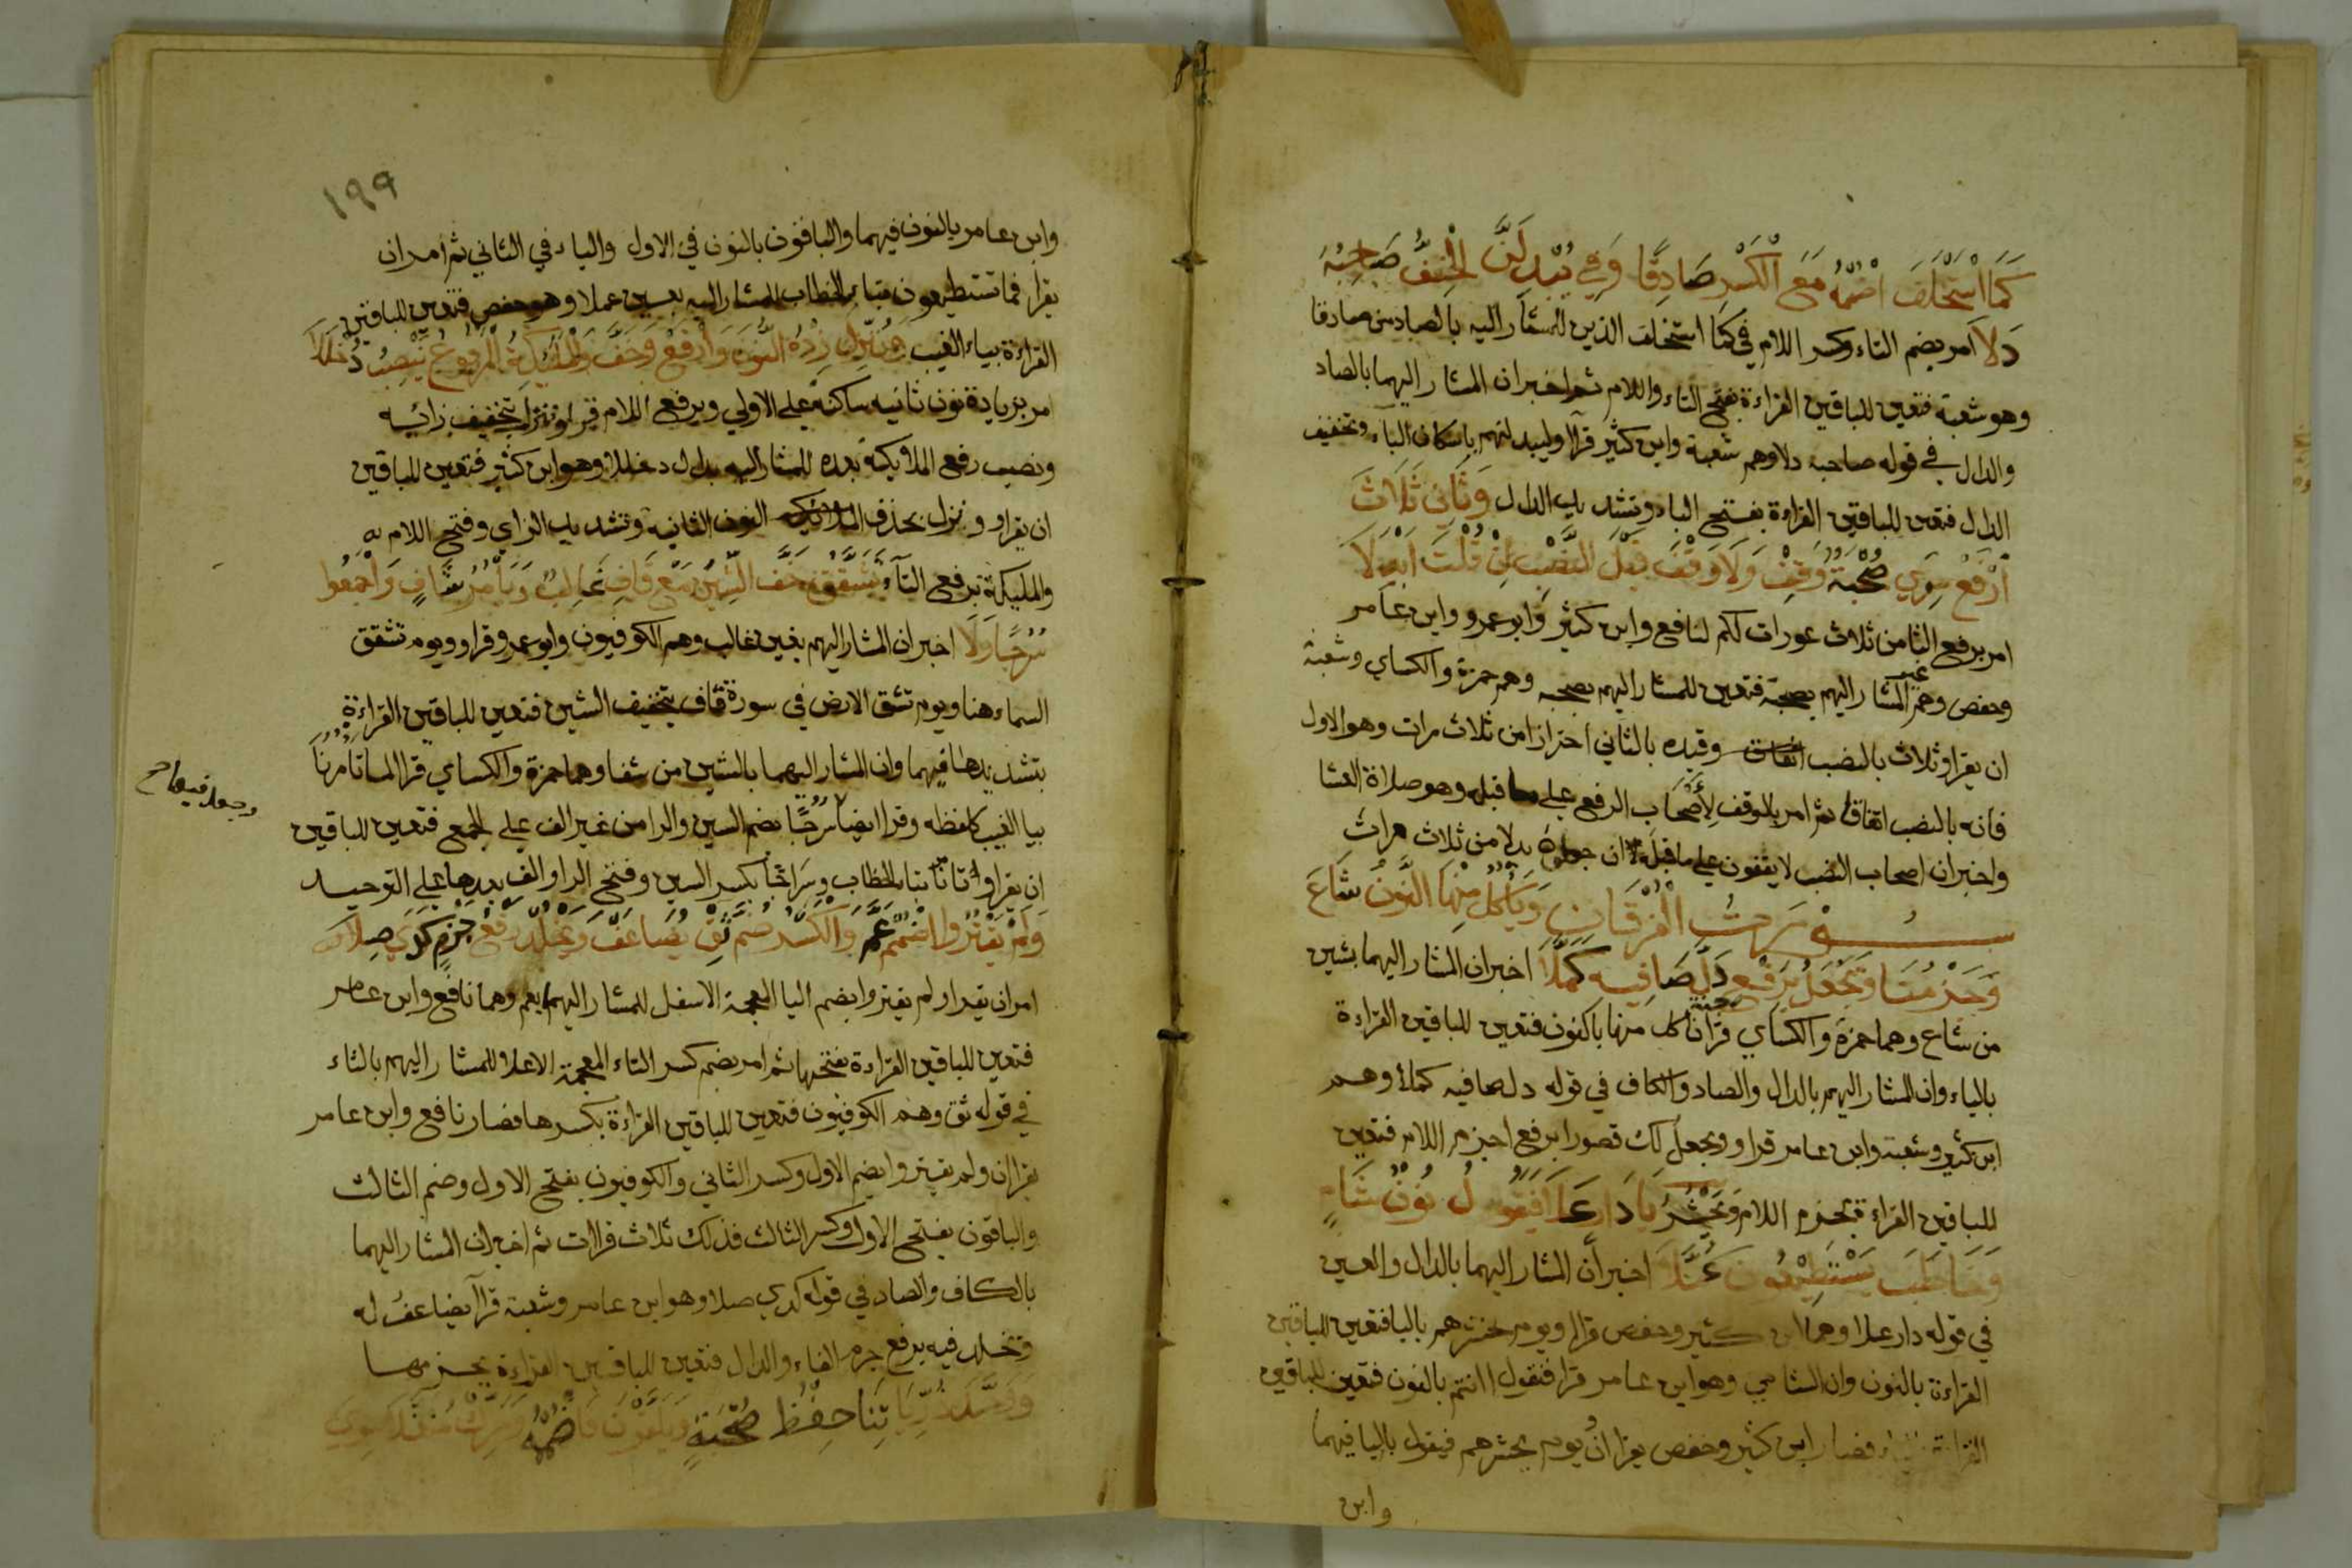 كَمَا اسْتُخْلِفَ اضْمُمْهُ مَعَ الْكَسْرِ صَادِقًا وَفِي يُبْدِلَنَّ الْخِفُّ صَاحِبُهُ
دَلَا امر بضم التاء وكسر اللام في كما استخلف الذين للمشار اليه بالصاد من صادقا
وهو شعبة فتعين للباقين القراءة بفتح التاء واللام ثم اخبر ان المشار اليهما بالصاد
والدال في قوله صاحبه دلا وهم شعبة وابن كثير قرآ وليبدلنهم باسكان الباء وتخفيف
الدال فتعين للباقين القراءة بفتح الباء وتشديد الدال وَثَانِي ثَلَاثَ
ارْفَعْ سِوَى صُحْبَةٌ وَقِفْ وَلَا وَقْفَ قَبْلَ النَّصْبِ اِنْ قُلْتَ اُبْدِلَا
امر برفع الثا من ثلاث عورات لكم لنافع وابن كثير وابو عمرو وابن عامر
وحفص وهم غير المشار اليهم بصحبة فتعين للمشار اليهم بصحبه وهم حمزة والكساي وشعبة
ان يقراو ثلاث بالنصب وقيده بالثاني احترازا من ثلاث مرات وهو الاول
فانه بالنصب اتفاقا ثم امر بالوقف لأصْحَاب الرفع علي ما قبله وهو صلاة العشا
واخبر ان اصحاب النصب لا يقفون علي ما قبله ان جعلوه بدلا من ثلاث مرات
سورة الفرقان وَيَأْكُلُ مِنْهَا النُّونُ شَاعَ
وَجَزْمُنَا وَيَجْعَلُ بِرَفْعٍ دَلَّ صَافِيهِ كَمَّلَا اخبر ان المشار اليهما بشين
من شاع وهما حمزة والكساي قرآ جنة ناكل منها بالنون فتعين للباقين القراءة
بالياء وان المشار اليهم بالدال والصاد والكاف في قوله دل صافيه كملا وهم
ابن كثير وشعبة وابن عامر قراو ويجعل لك قصورا برفع جزم اللام فتعين
للباقين القراءة بجزم اللام وَنَحْشُرُ يَا دَارٍ عَلَا فَيَقُولُ نُونُ شَامٍ
وَخَاطَبَ يَسْتَطِيعُونَ عُمَّلَا اخبر ان المشار اليهما بالدال والعين
في قوله دار علا وهما ابن كثير وحفص قرا ويوم يحشرهم باليا فتعين للباقين
القراءة بالنون وان الشامي وهو ابن عامر قرا فنقول اانتم بالنون فتعين للباقين
القراءة بالياء فصار ابن كثير وحفص يقران يوم يحشرهم فيقول باليا فيهما
وابن
١٩٩
وابن عامر بالنون فيهما والباقون بالنون في الاول والياء في الثاني ثم امر ان
يقرا فما تستطيعون بتاء الخطاب للمشار اليه بعين عملا وهو حفص فتعين للباقين
القراءة بياء الغيب وَنُزِّلَ زِدْهُ النُّونَ وَارْفَعْ وَخِفَّ وَالْمَلَائِكَةُ الْمَرْفُوعُ يُنْصَبُ دُخْلُلَا
امر بزيادة نون ثانيه ساكنة علي الاولي وبرفع اللام بتخفيف زائيه
ونصب رفع الملايكة بعده للمشار اليه بدال دخللا وهو ابن كثير فتعين للباقين
ان يقراو ونزل بحذف النون الثانية وتشديد الزاي وفتح اللام
والمليكة برفع التآء تَشَقَّقُ خِفُّ الشِّينِ مَعْ قَافَ غَالِبٌ وَيَأْمُرُ شَافٍ وَاجْمَعُوا
سُرُجًا وِلَا اخبر ان المشار اليهم بغين غالب وهم الكوفيون وابو عمرو قراو ويوم تشقق
السماء هنا ويوم تشقق الارض في سورة قاف بتخفيف الشين فتعين للباقين القراءة
بتشديدها فيهما وان المشار اليهما بالشين من شفا وهما حمزة والكساي قرآ لما تامرنا
بيا الغيب كلفظه وقرا ايضا سرجا بضم السين والرا من غير الف علي الجمع فتعين للباقين
وجعل فيها صح
ان يقراو تامرنا بتاء الخطاب وسراجا بكسر السين وفتح الرا والف بعدها علي التوحيد
وَلَمْ يَقْتُرُوا اضْمُمْ عَمَّ وَالْكَسْرَ ضُمَّ ثِقْ يُضَاعَفْ وَيَخْلُدْ رَفْعُ جَزْمٍ كَذِي صِلَا
امر ان يقراو لم يقتروا بضم اليا المعجمة الاسفل للمشار اليهما بعم وهما نافع وابن عامر
فتعين للباقين القراءة بفتحها ثم امر بضم كسر التاء المعجمة الاعلا للمشار اليهم بالثاء
في قوله ثق وهم الكوفيون فتعين للباقين القراءة بكسرها فصار نافع وابن عامر
يقراان ولم يقتروا بضم الاول وكسر الثاني والكوفيون بفتح الاول وضم الثالث
والباقون بفتح الاول وكسر الثالث فذلك ثلاث قراات ثم اخبر ان المشار اليهما
بالكاف والصاد في قوله كذي صلا وهو ابن عامر وشعبة قرآ يضاعف له
ويخلد فيه برفع جزم الفاء والدال فتعين للباقين القراءة بجزمهما
وَوَحَّدَ ذُرِّيَّاتِنَا حِفْظُ صُحْبَةٍ وَيَلْقَوْنَ فَاضْمُمْهُ وَحَرِّكْ مُثَقِّلَا سِوَى